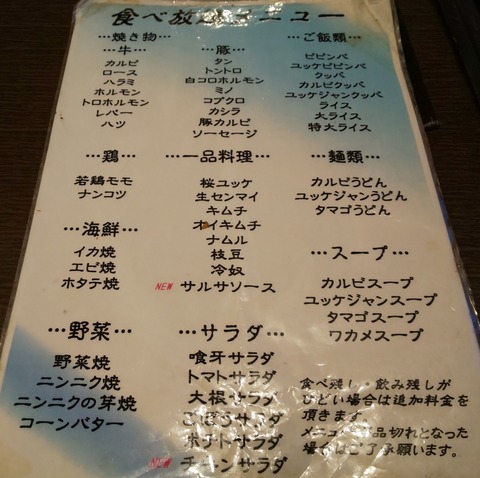 食べ放題メニュー
…焼き物…
…牛…
カルビ
ロース
ハラミ
ホルモン
トロホルモン
レバー
ハツ
…豚…
タン
トントロ
白コロホルモン
ミノ
コブクロ
カシラ
豚カルビ
ソーセージ
…ご飯類…
ビビンバ
ユッケビビンバ
クッパ
カルビクッパ
ユッケジャンクッパ
ライス
大ライス
特大ライス
…鶏…
若鶏モモ
ナンコツ
…一品料理…
桜ユッケ
生センマイ
キムチ
オイキムチ
ナムル
枝豆
冷奴
NEW サルサソース
…麺類…
カルビうどん
ユッケジャンうどん
タマゴうどん
…海鮮…
イカ焼
エビ焼
ホタテ焼
…スープ…
カルビスープ
ユッケジャンスープ
タマゴスープ
ワカメスープ
…野菜…
野菜焼
ニンニク焼
ニンニクの芽焼
コーンバター
…サラダ…
喰牙サラダ
トマトサラダ
大根サラダ
ごぼうサラダ
ポテトサラダ
NEW チキンサラダ
食べ残し・飲み残しが
ひどい場合は追加料金を
頂きます。
メニューが品切れとなった
場合はご了承願います。